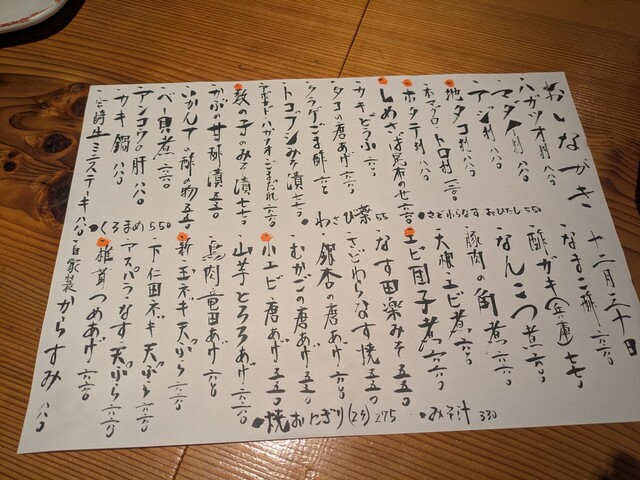 おしながき
十二月三十日
・ハガツオ刺 八八〇
・なまこ酢 六六〇
・マダイ刺 八八〇
・酢ガキ(兵庫) 七七〇
・アジ刺 八八〇
・なんこつ煮 六六〇
・地タコ刺 八八〇
・豚肉の角煮 六六〇
・本マグロトロ刺
・天使エビ煮
・ホタテ刺 六六〇
・エビ団子煮 六六〇
・しめさば昆布のせ 六六〇
・なす田楽みそ 五五〇
・カキどうふ 六六〇
・さどわらなす焼 五五〇
・タコの唐あげ 六六〇
・銀杏の唐あげ
・クラゲごま酢
・むかごの唐あげ 五五〇
・トコブシみそ漬 七七〇
・小エビ唐あげ 五五〇
ハガツオごまだれ 六六〇
・山芋とろろあげ 六六〇
・数の子のみそ漬 七七〇
・鳥肉竜田あげ
・かぶの甘酢漬 五五〇
・新玉ネギ天ぷら 六六〇
・みかんての酢の物 五五〇
・下仁田ネギ天ぷら 六六〇
・ベー貝煮 六六〇
・アスパラ・なす・天ぷら 六六〇
・アンコウの肝 八八〇
・椎茸つめあげ 六六〇
・カキ鍋 八八〇
・自家製からすみ 八八〇
・宮崎牛ミニステーキ 八八〇
●さどわらなすおひたし 550
わさび葉 550
●くろまめ 550
●焼おにぎり(2ケ) 275
●みそ汁 330